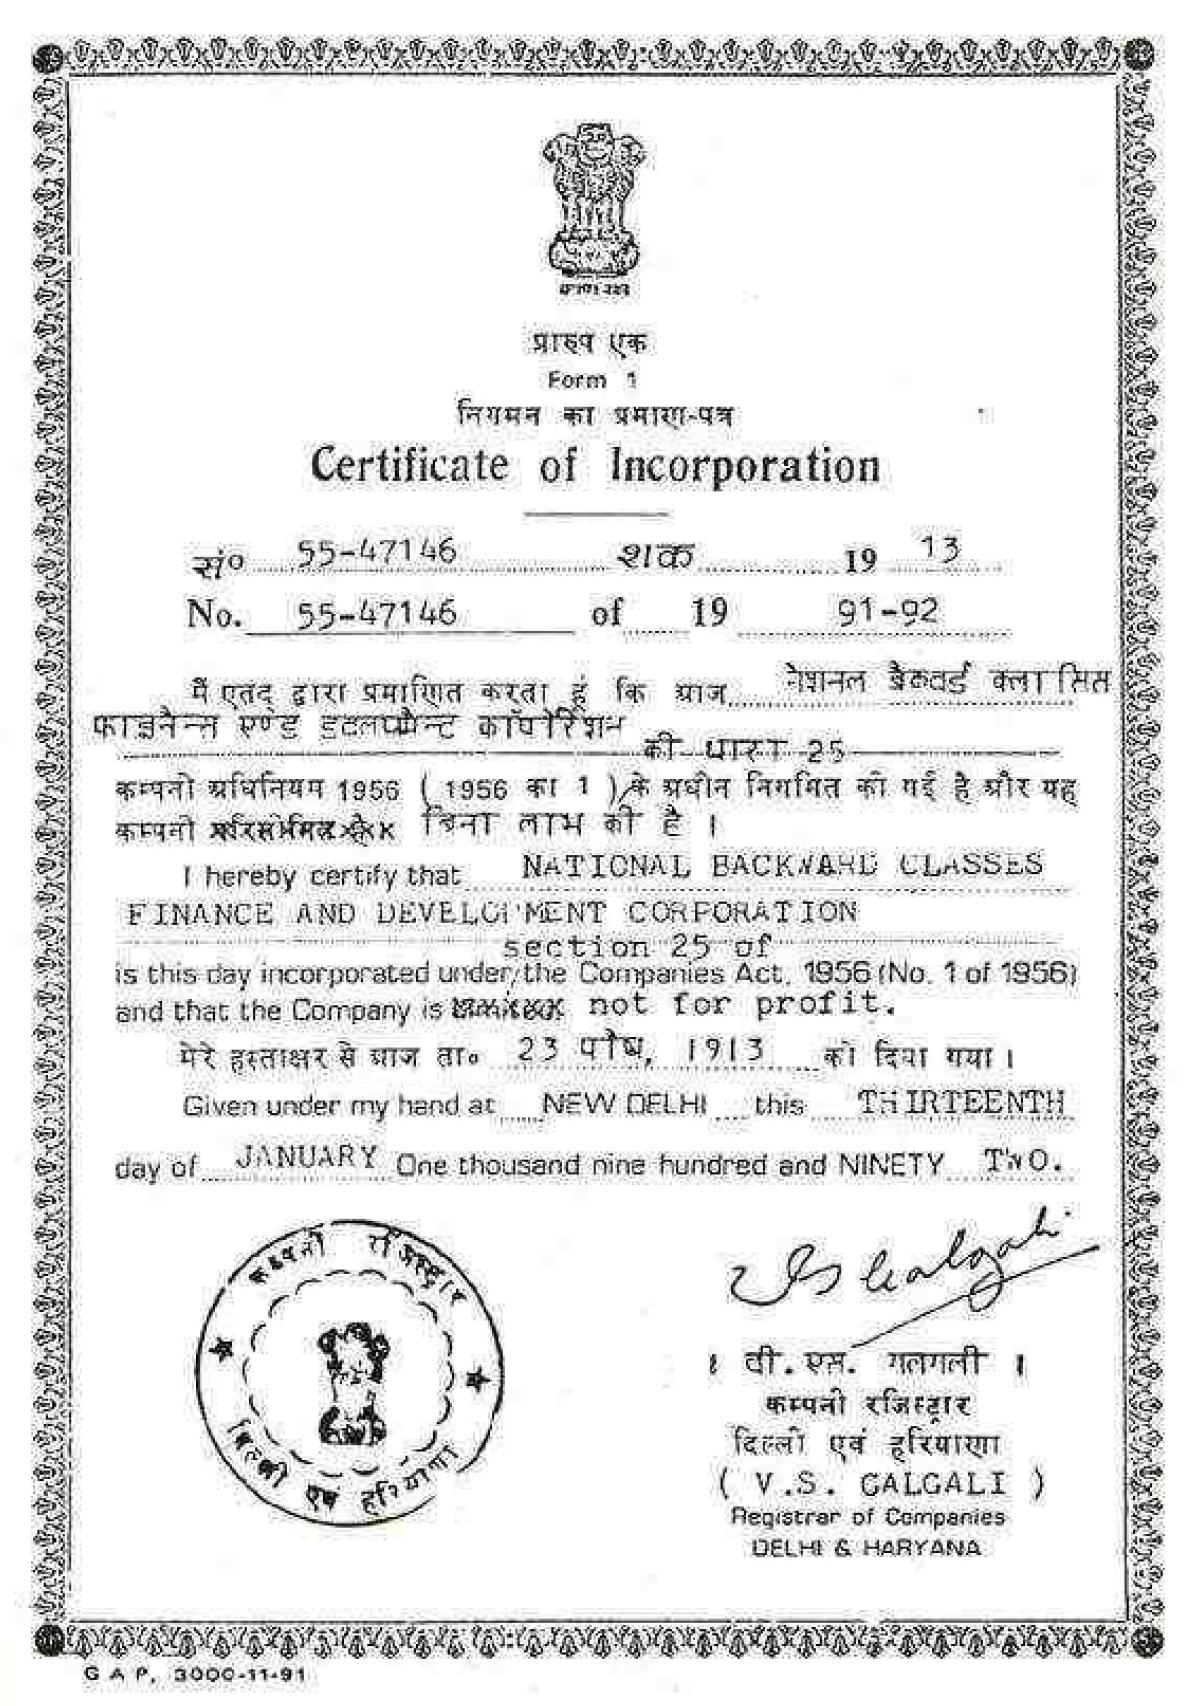 प्रारुप एक
Form 1
निगमन का प्रमाण-पत्र
Certificate of Incorporation
सं० 55-47146 शक 19 13
No. 55-47146 of 19 91-92
मैं एतद् द्वारा प्रमाणित करता हूं कि आज नेशनल बैकवर्ड क्लासिस
फाइनैन्स एण्ड डवलपमैन्ट कॉर्पोरेशन
की धारा 25
कम्पनी अधिनियम 1956 ( 1956 का 1 ) के अधीन निगमित की गई है और यह
कम्पनी बिना लाभ की है ।
I hereby certify that NATIONAL BACKWARD CLASSES
FINANCE AND DEVELOPMENT CORPORATION
section 25 of
is this day incorporated under/the Companies Act, 1956 (No. 1 of 1956)
and that the Company is not for profit.
मेरे हस्ताक्षर से आज ता० 23 पौष, 1913 को दिया गया ।
Given under my hand at NEW DELHI this THIRTEENTH
day of JANUARY One thousand nine hundred and NINETY TWO.
कम्पनी रजिस्ट्रार
दिल्ली एवं हरियाणा
VS Galgali
। वी. एस. गलगली ।
कम्पनी रजिस्ट्रार
दिल्ली एवं हरियाणा
( V.S. GALGALI )
Registrar of Companies
DELHI & HARYANA
G A P. 3000-11-91